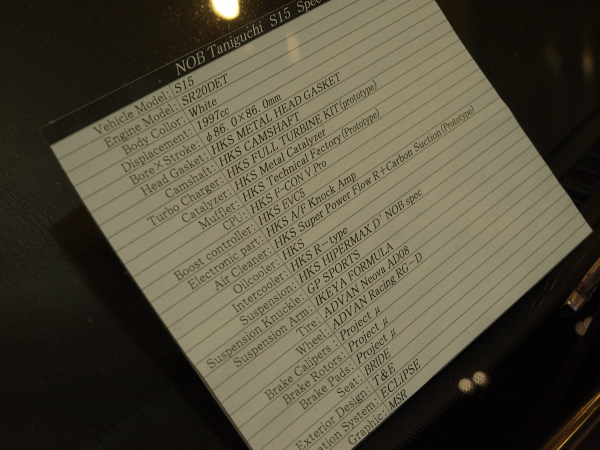 NOB Taniguchi S15 Spec
Vehicle Model: S15
Engine Model: SR20DET
Body Color: White
Displacement: 1997cc
Bore×Stroke: φ86.0×86.0mm
Head Gasket: HKS METAL HEAD GASKET
Camshaft: HKS CAMSHAFT
Turbo Charger: HKS FULL TURBINE KIT(prototype)
Catalyzer: HKS Metal Catalyzer
Muffler: HKS Technical Factory(Prototype)
CPU: HKS F-CON V Pro
Boost controller: HKS EVC5
Electronic part: HKS A/F Knock Amp
Air Cleaner: HKS Super Power Flow R+Carbon Suction(Prototype)
Oilcooler: HKS
Intercooler: HKS R-type
Suspension: HKS HIPERMAX D' NOB spec
Suspension Knuckle: GP SPORTS
Suspension Arm: IKEYA FORMULA
Tire: ADVAN Neova AD08
Wheel: ADVAN Racing RG-D
Brake Calipers: Project μ
Brake Rotors: Project μ
Brake Pads: Project μ
Seat: BRIDE
Exterior Design: T&E
ation System: ECLIPSE
Graphic: MSR